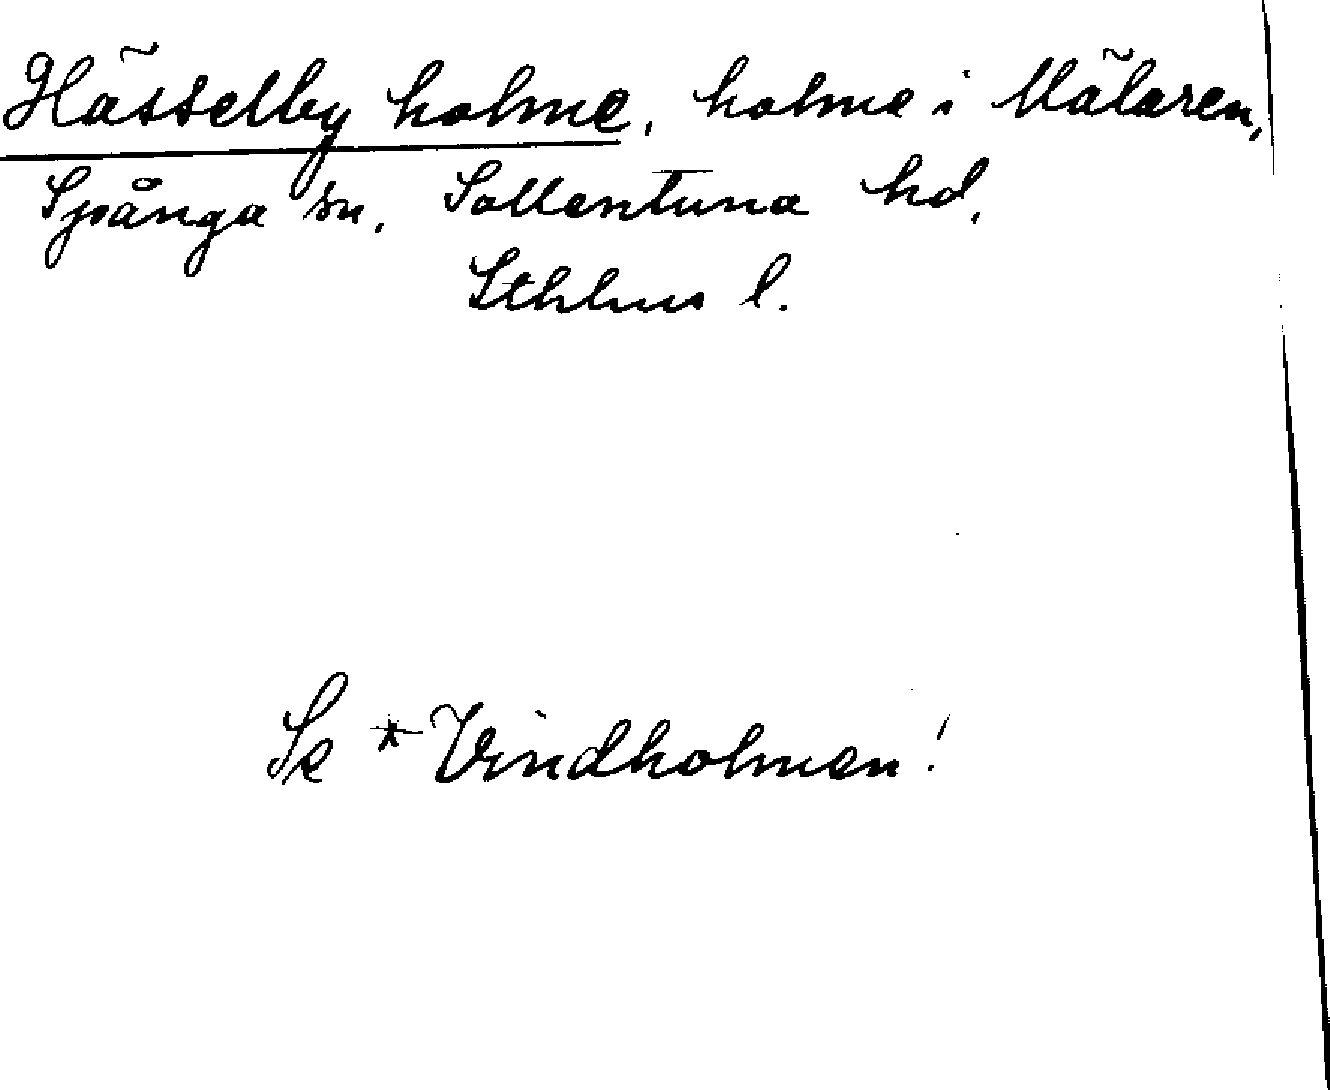 Hässelby holme, holme i Mälaren,
Spånga sn, Sollentuna hd,
Sthlms l.
Se *Vindholmen!